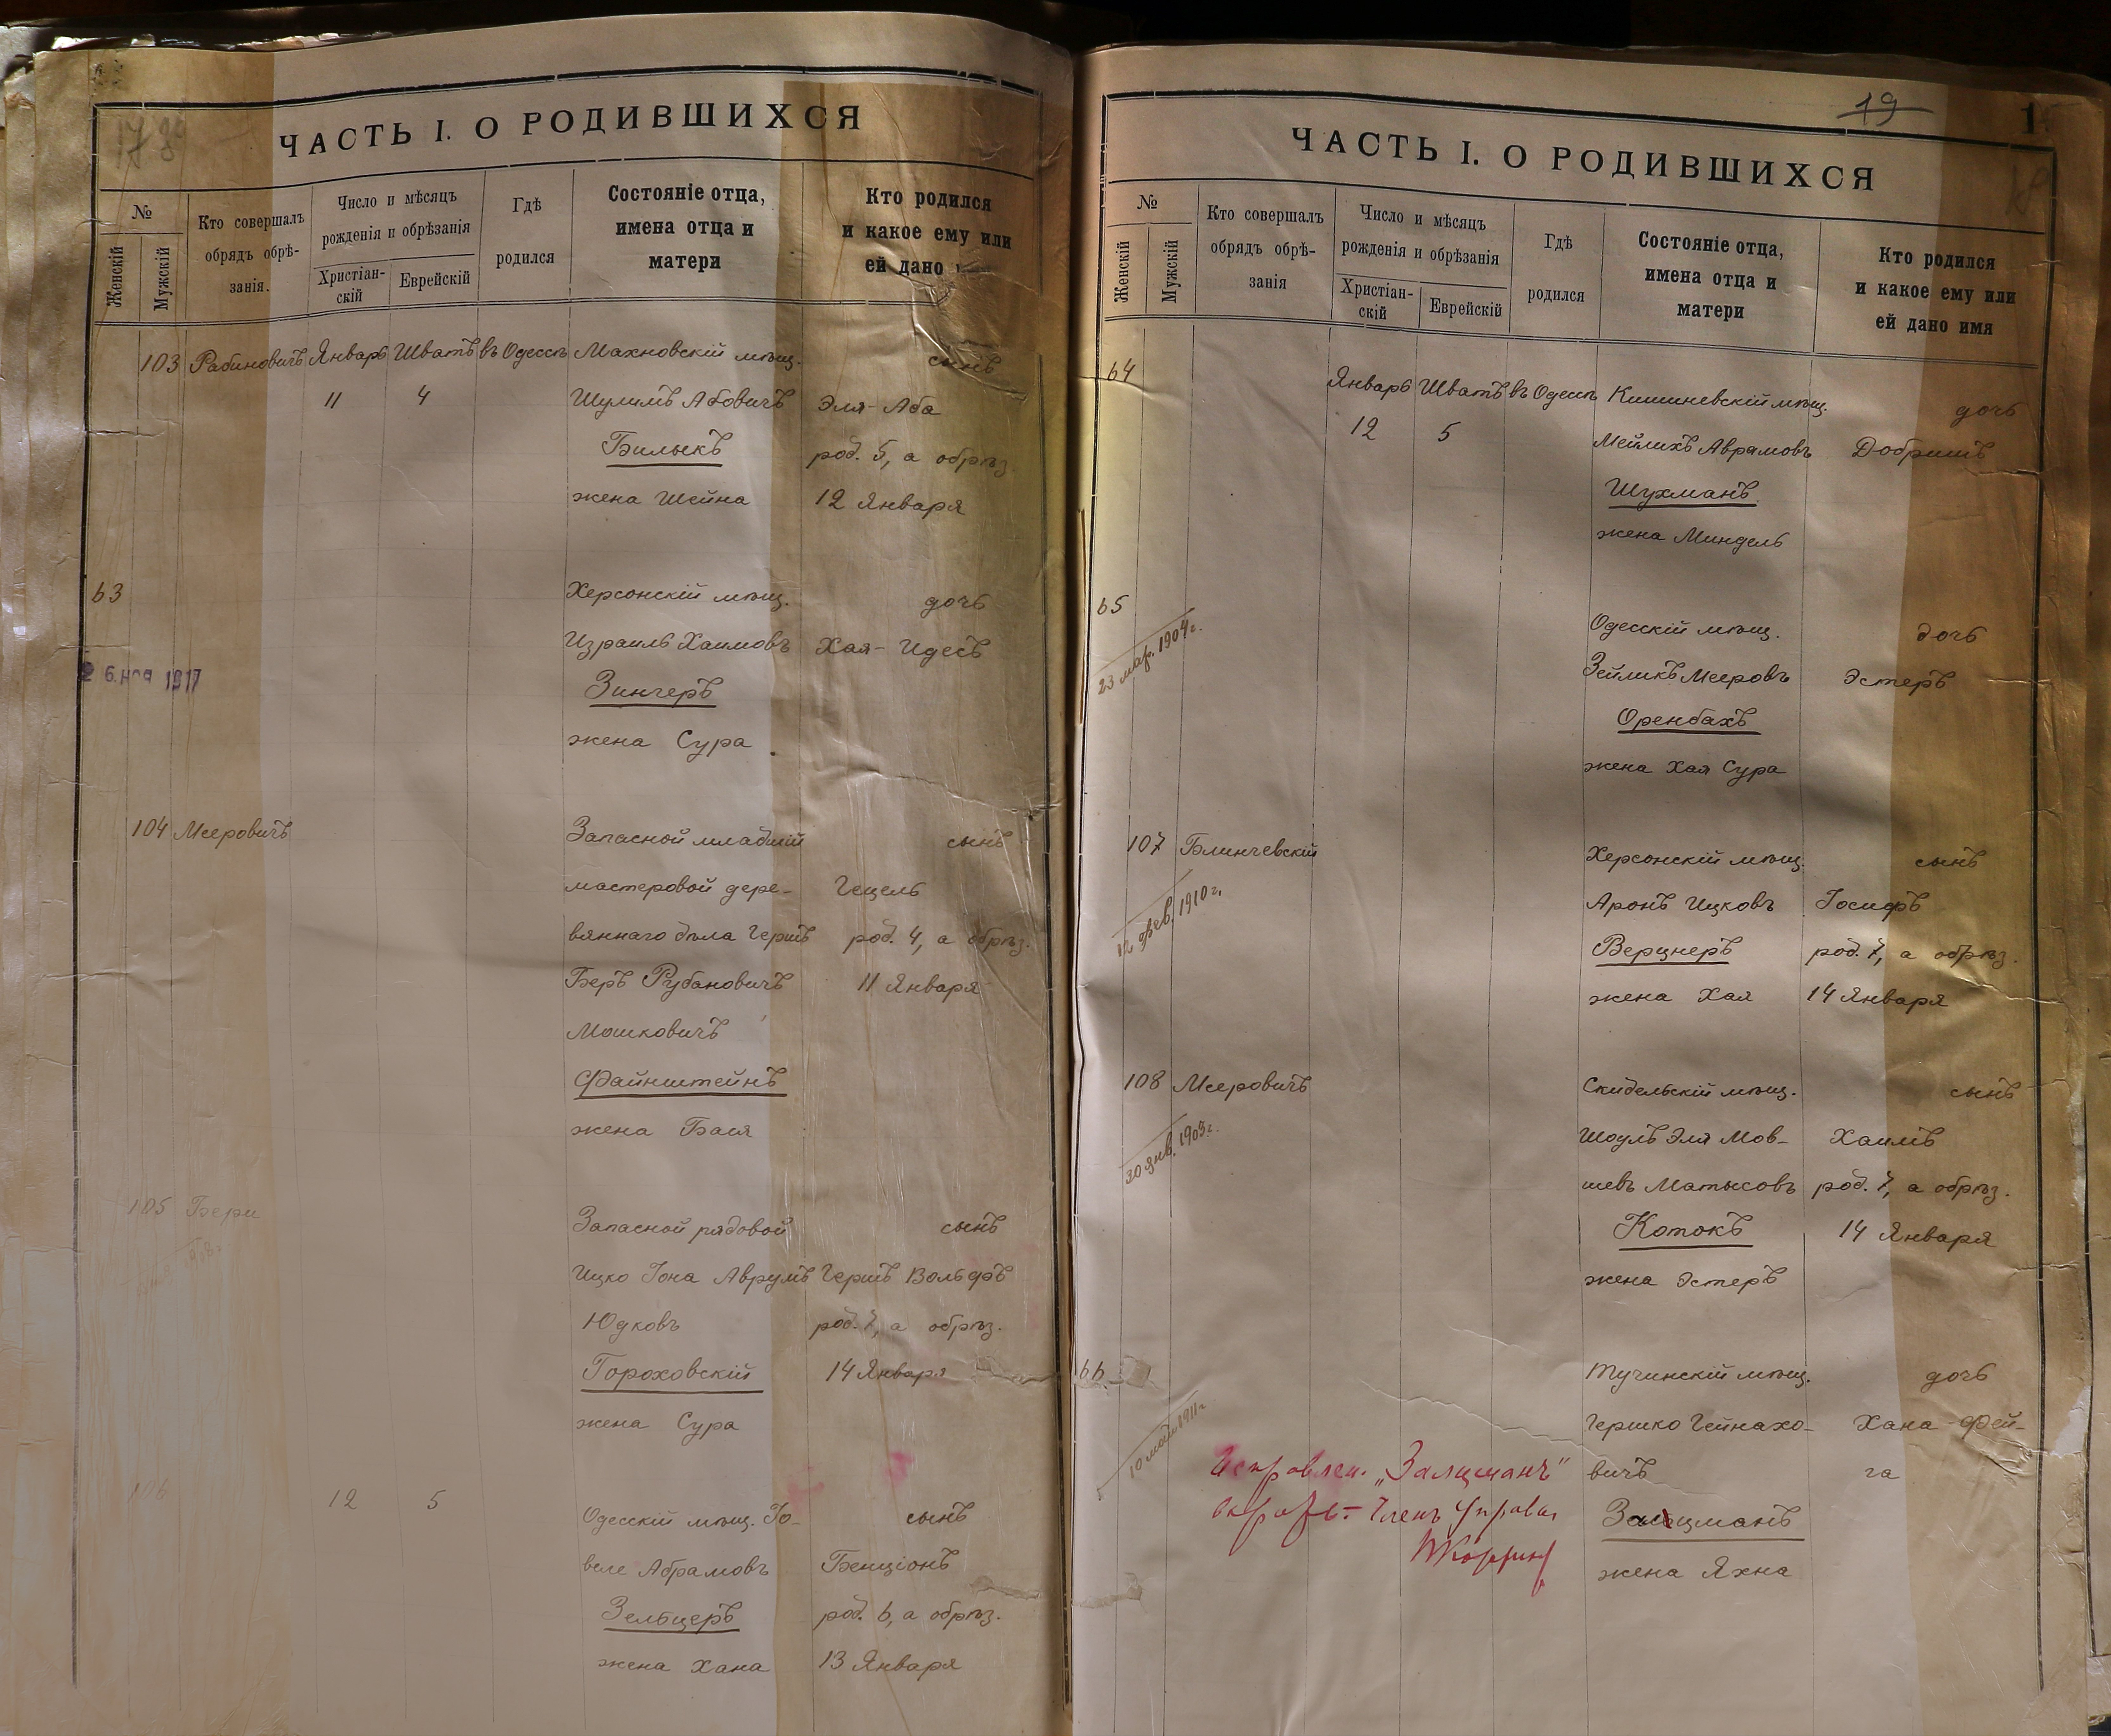 ЧАСТЬ I. О РОДИВШИХСЯ
№
Женскій
Мужскій
Кто совершалъ
обрядъ обрѣ-
занія.
Число и мѣсяцъ
рожденія и обрѣзанія
Христіан-
скій
Еврейскій
Гдѣ
родился
Состояніе отца,
имена отца и
матери
Кто родился
и какое ему или
ей дано
103 Рабиновичъ Январь Шватъ въ Одессѣ Махновскій мѣщ. сынъ
11 4 Шулимъ Абовичъ Эля-Аба
Билыкъ род. 5, а обрѣз.
жена Шейна 12 Января
63 Херсонскій мѣщ. дочь
Израиль Хаимовъ Хая-Идесъ
6. ноя 1917 Зингеръ
жена Сура
104 Мееровичъ Запасной младшій сынъ
мастеровой дере- Гецель
вяннаго дѣла Гершъ род. 4, а обрѣз.
Беръ Рубановичъ 11 Января
Мошковичъ
Файнштейнъ
жена Бася
105 Бери Запасной рядовой сынъ
Ицко Іона Аврумъ Гершъ Вольфъ
Юдковъ род. 7, а обрѣз.
Гороховскій 14 Января
жена Сура
106 12 5 Одесскій мѣщ. Іо- сынъ
веле Абрамовъ Бенціонъ
Зельцеръ род. 6, а обрѣз.
жена Хана 13 Января
19 1
ЧАСТЬ I. О РОДИВШИХСЯ
№
Женскій
Мужскій
Кто совершалъ
обрядъ обрѣ-
занія
Число и мѣсяцъ
рожденія и обрѣзанія
Христіан-
скій
Еврейскій
Гдѣ
родился
Состояніе отца,
имена отца и
матери
Кто родился
и какое ему или
ей дано имя
64 Январь Шватъ въ Одессѣ Кишиневскій мѣщ. дочь
12 5 Мейлихъ Аврамовъ Добришъ
Шухманъ
жена Миндель
65 Одесскій мѣщ. дочь
23 мар. 1904 г. Зейликъ Мееровъ Эстеръ
Оренбахъ
жена Хая Сура
107 Блинчевскій Херсонскій мѣщ. сынъ
12 фев. 1910 г. Аронъ Ицковъ Іосифъ
Верцнеръ род. 7, а обрѣз.
жена Хая 14 Января
108 Мееровичъ Скидельскій мѣщ. сынъ
30 янв. 1903 г. Шоулъ Эля Мов- Хаимъ
шевъ Матысовъ род. 7, а обрѣз.
Котокъ 14 Января
жена Эстеръ
66 Тучинскій мѣщ. дочь
10 мая 1911 г. Гершко Гейнахо- Хана-Фей-
Исправлен. „Залцманъ" вичъ га
Членъ Управы Залцманъ
жена Яхна